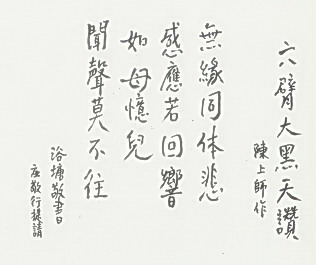 六臂大黑天讚
陳上師作
無緣同体悲
感應若回響
如母憶兒
聞聲莫不往
浴塘敬書